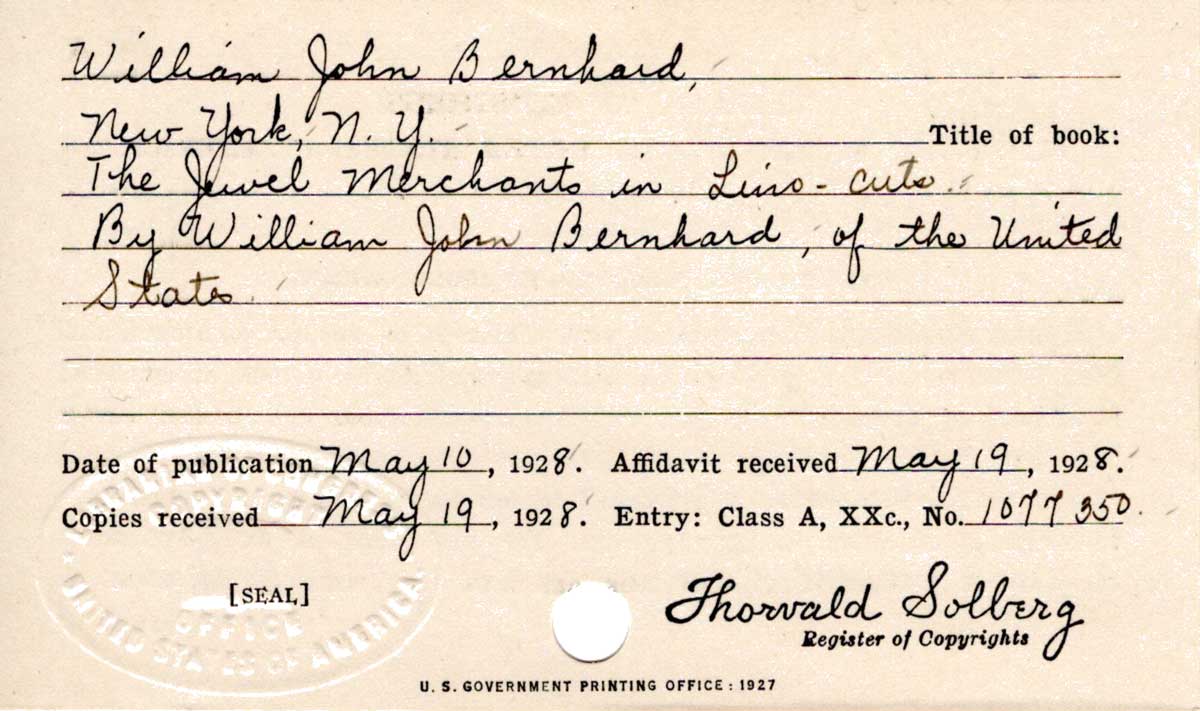 William John Bernhard,
New York, N. Y. Title of book:
The Jewel Merchants in Lino-cuts.
By William John Bernhard, of the United
States.
Date of publication May 10, 1928. Affidavit received May 19, 1928.
Copies received May 19, 1928. Entry: Class A, XXc., No. 1077350.
LIBRARY OF CONGRESS
COPYRIGHT
[SEAL]
OFFICE
UNITED STATES OF AMERICA
Thorvald Solberg
Register of Copyrights
U. S. GOVERNMENT PRINTING OFFICE: 1927